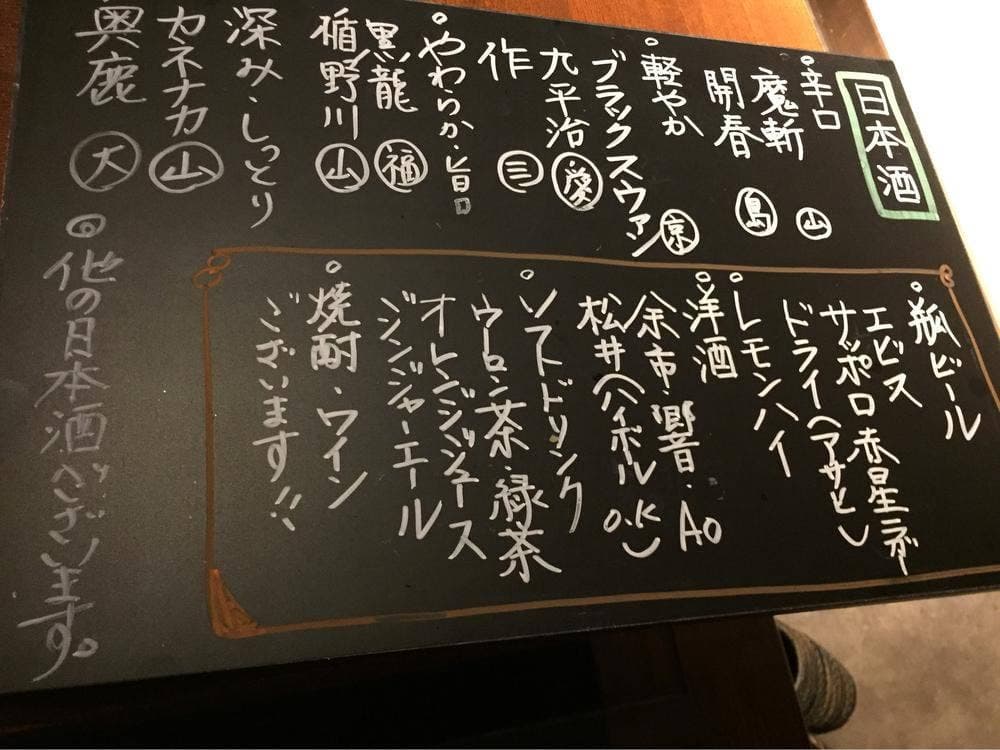 日本酒
○辛口
魔斬 ㊀山
開春 島
○軽やか
ブラックスワァン 京
九平治
作 三
○やわらか・旨口
黒龍 福
楯野川 山
深み・しっとり
カネナカ 山
奥鹿 大
◎他の日本酒ございます。
○瓶ビール
エビス
サッポロ赤星ラガー
ドライ(アサヒ)
○レモンハイ
○洋酒
余市・響・AO
松井(ハイボールO.K)
○ソフトドリンク
ウーロン茶・緑茶
オレンジジュース
ジンジャーエール
○焼酎・ワイン
ございます!!